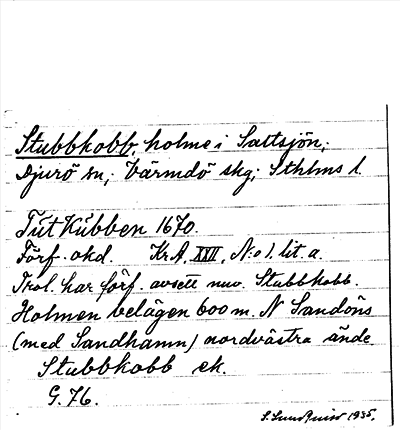 Stubbkobb, holme i Saltsjön,
Djurö sn; Värmdö skg; Sthlms l.
Tut Kubben 1670.
Förf. okd. Kr. A. XXII, N:o 1. lit. a.
Trol. har förf. avsett nuv. Stubbkobb.
Holmen belägen 600 m. N Sandöns
(med Sandhamn) nordvästra ände.
Stubbkobb ek.
G. 76.
S. Sundquist 1935.